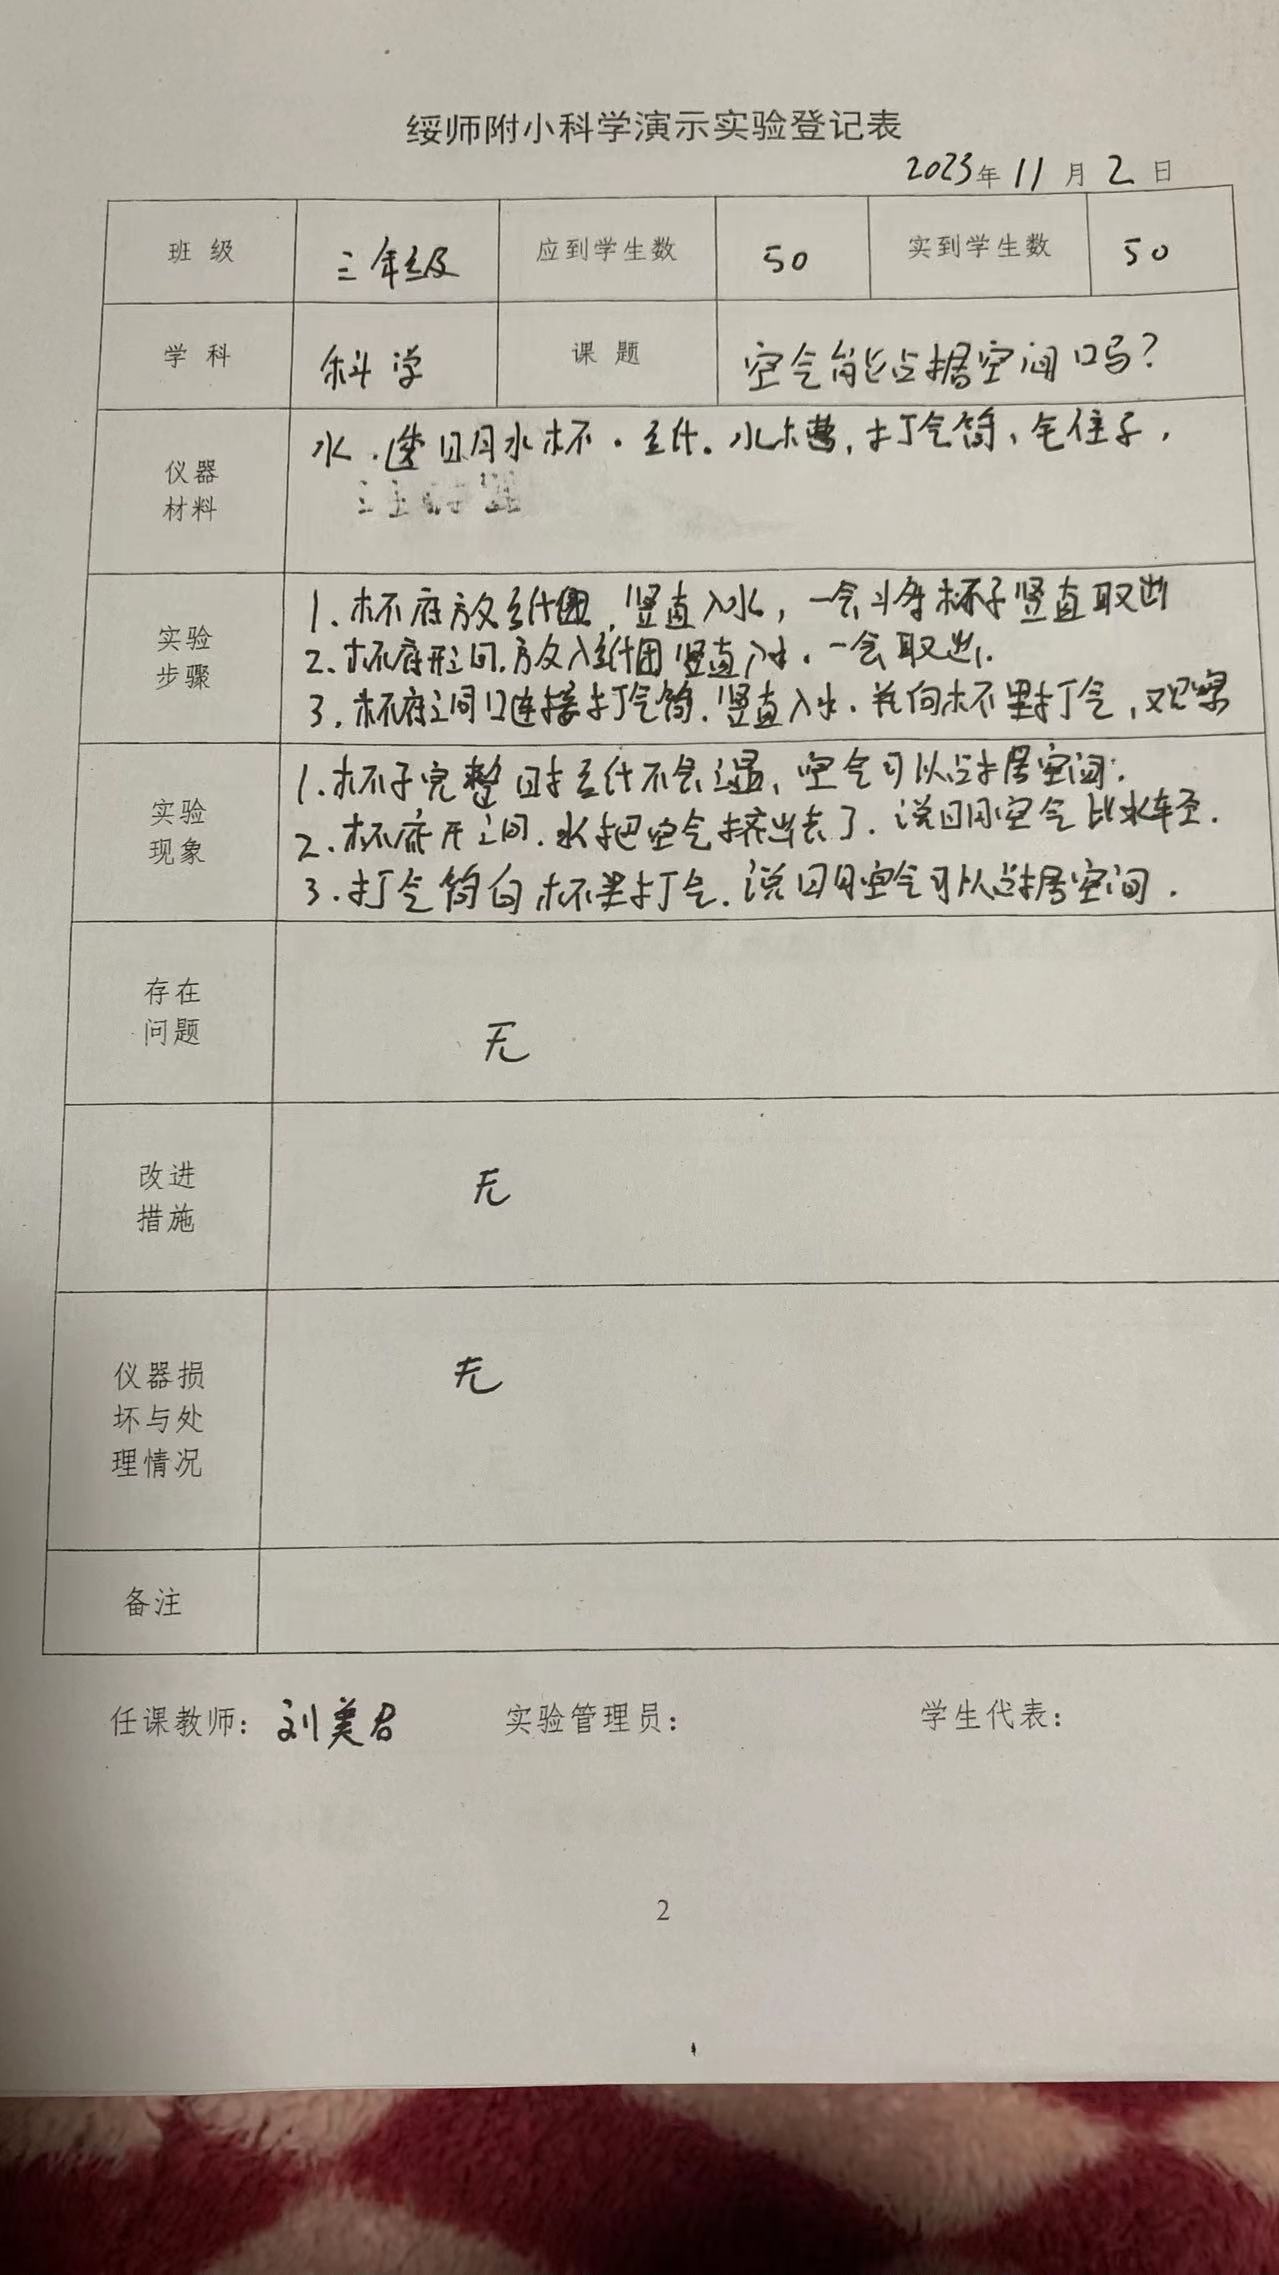 绥师附小科学演示实验登记表
2023年11月2日
班级 三年级 应到学生数 50 实到学生数 50
学科 科学 课题 空气能占据空间吗?
仪器
材料
水.透明水杯.纸.水槽,打气筒、
实验
步骤
1.杯底放纸团,竖直入水,一会将杯子竖直取出
2.杯底开之间.放入纸团竖直入水.一会取出.
3.杯底之间口连接打气筒.竖直入水.并向杯里打气,观察
实验
现象
1.杯子完整时纸不会湿,空气可以占据空间.
2.杯底开之间.水把空气挤出去了.说明空气比水轻.
3.打气筒向杯里打气.说明空气可以占据空间.
存在
问题
无
改进
措施
无
仪器损
坏与处
理情况
无
备注
任课教师: 刘美君 实验管理员: 学生代表:
2